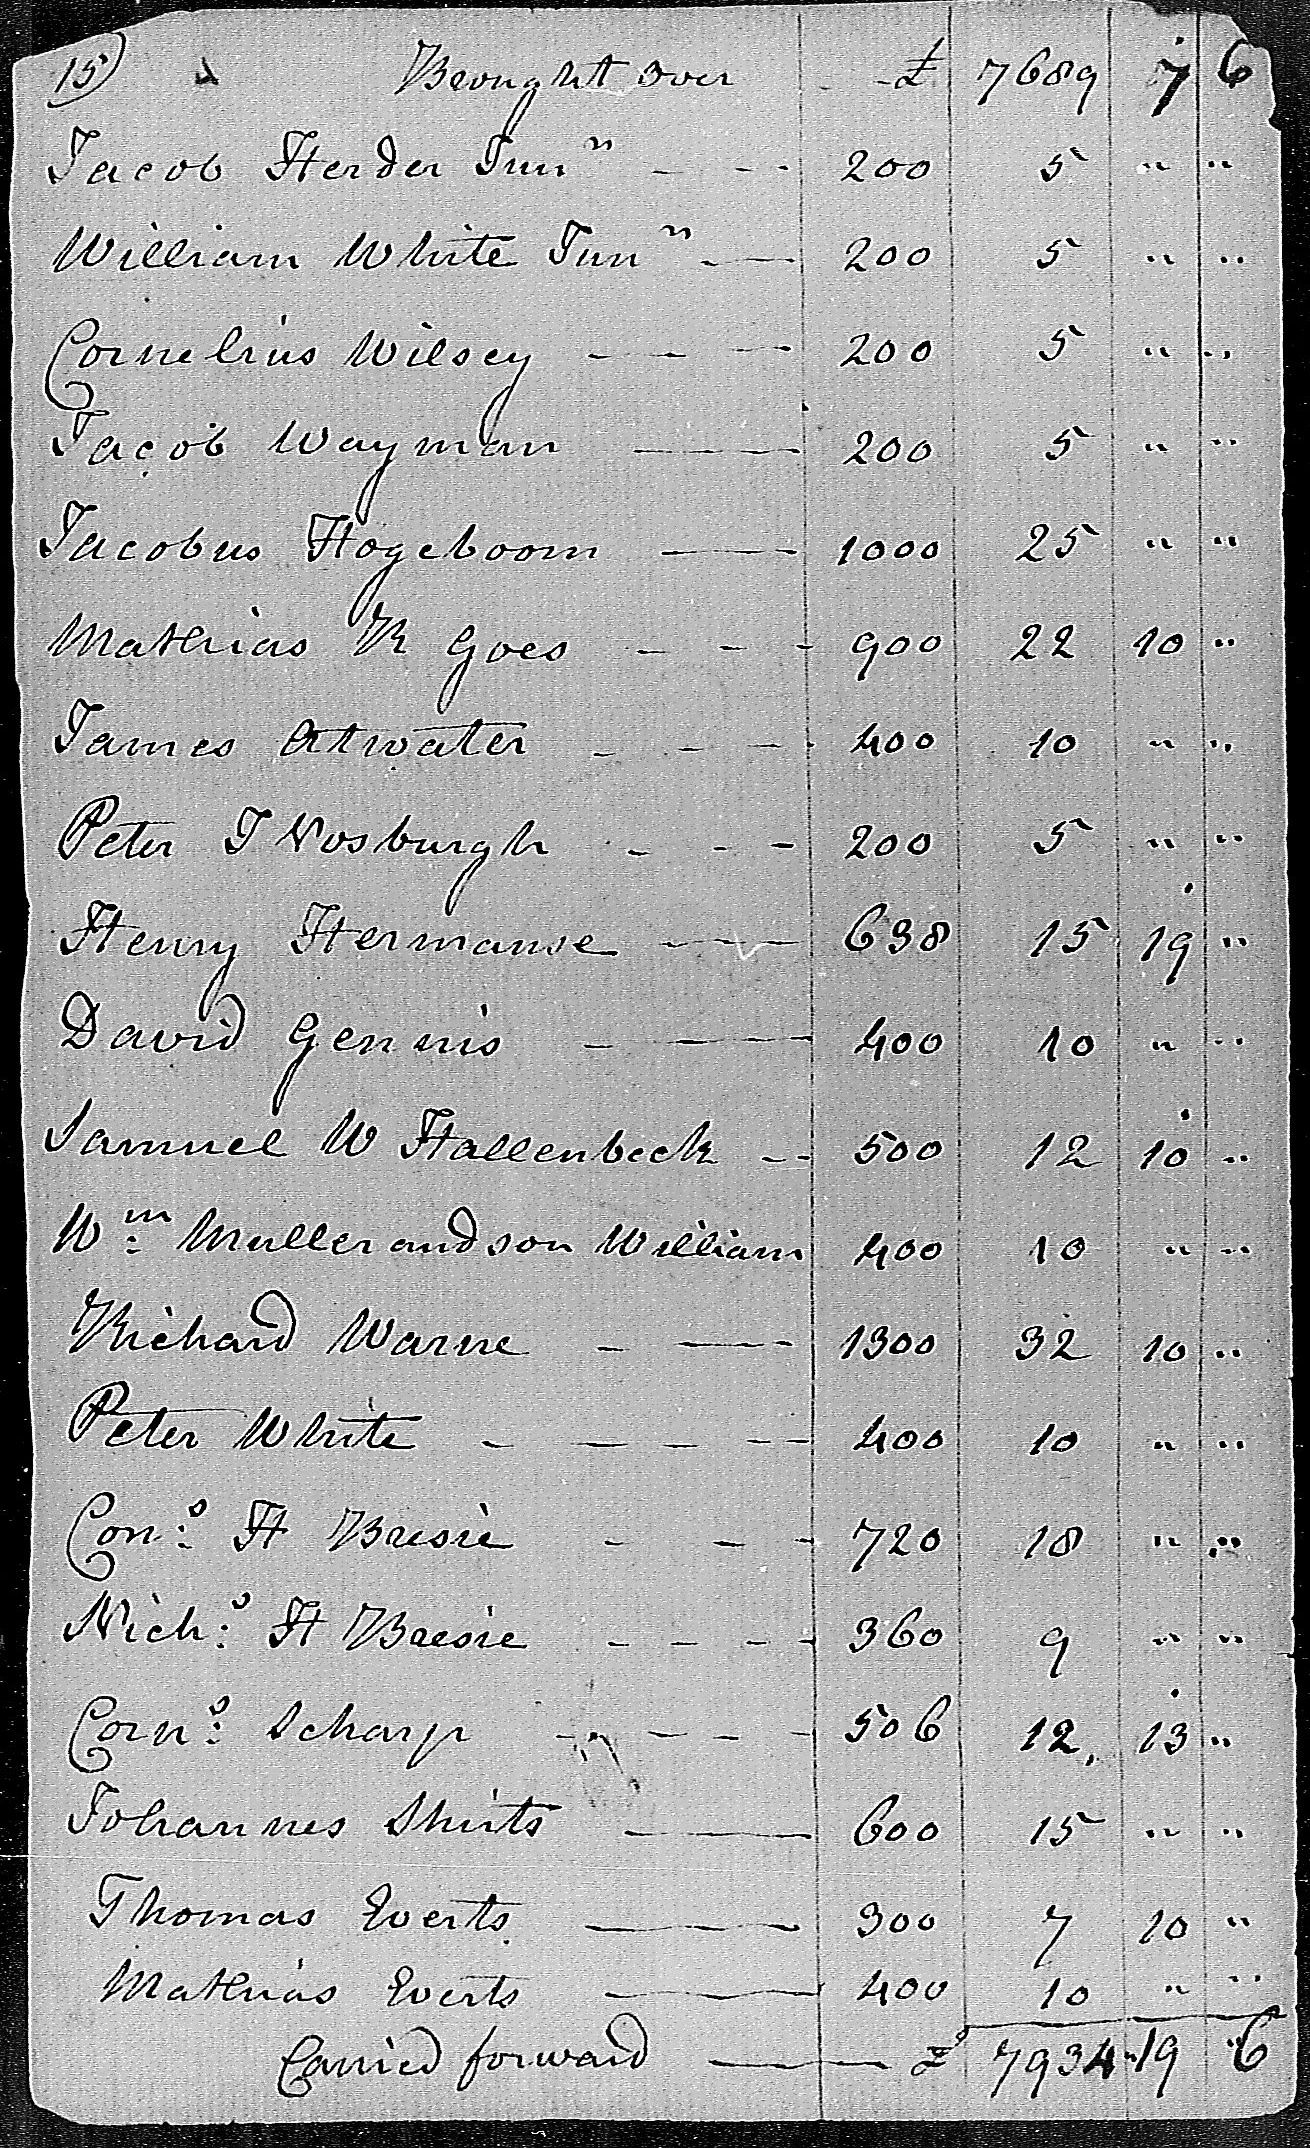 15) Brought over £ 7689 7 6
Jacob Herder Junr - - - 200 5 " "
William White Junr - - 200 5 " "
Cornelius Wilsey - - - 200 5 " "
Jacob Wayman — 200 5 " "
Jacobus Hogeboom — 1000 25 " "
Mathias R Goes - - - 900 22 10 "
James Atwater - - - 400 10 " "
Peter I Vosburgh - - - 200 5 " "
Henry Hermanse - - 638 15 19 "
David Gennis - — 400 10 " "
Samuel W Hallenbeck - - 500 12 10 "
Wm: Muller and son William 400 10 " "
Richard Warne - — 1300 32 10 "
Peter White - - - - 400 10 " "
Cors: H Bresie - - - 720 18 " "
Nichs: H Bresie - - - - 360 9 " "
Corns: Scharp - - - - 506 12 13 "
Johannes Shuts — 600 15 " "
Thomas Everts — 300 7 10 "
Mathias Everts — 400 10 " "
Carried forward — £ 7934 19 6